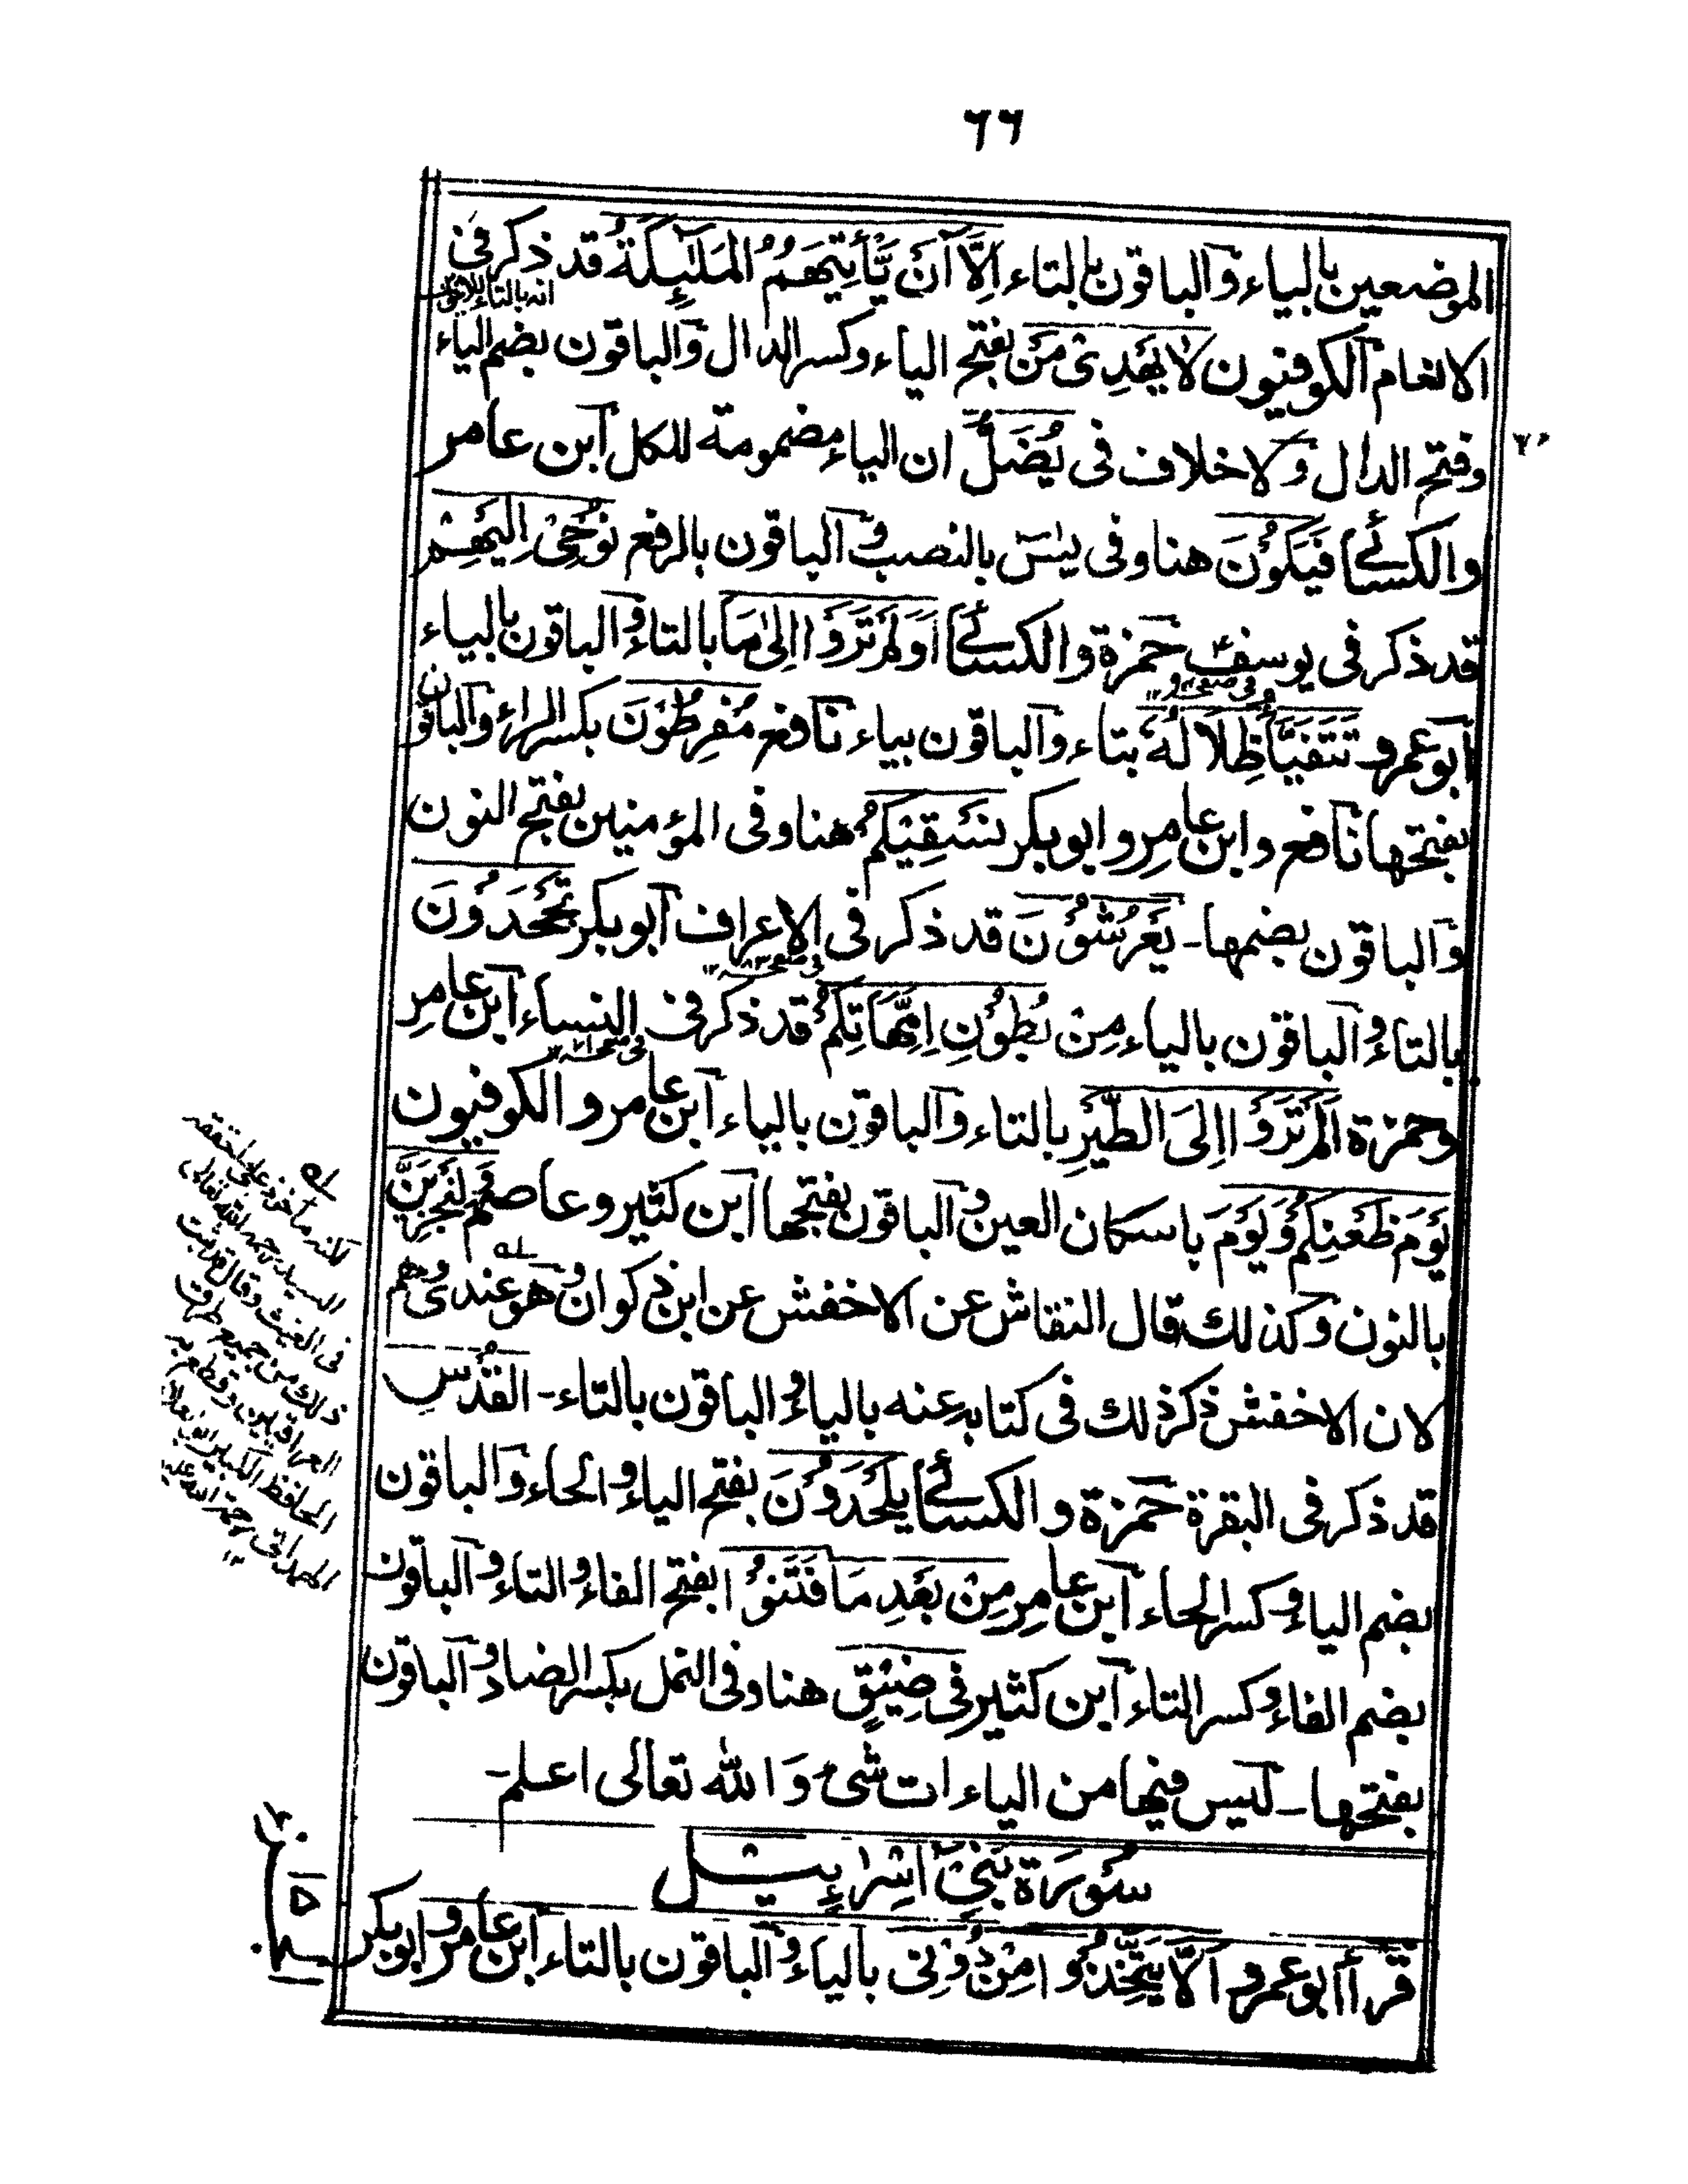 ٦٦
الموضعين بالياء والباقون بالتاء اِلَّآ اَنْ يَّأْتِيَهُمُ الْمَلٰٓئِكَةُ قد ذكر فى
الانعام الكوفيون لا يَهْدِىْ مَنْ بفتح الياء وكسر الدال والباقون بضم الياء
وفتح الدال ولا خلاف فى يُضِلُّ ان الياء مضمومة للكل ابن عامر
والكسائى فَيَكُوْنَ هنا وفى يٰسٓ بالنصب والباقون بالرفع نُوْحِىْٓ اِلَيْهِمْ
قد ذكر فى يوسف حمزة والكسائى اَوَلَمْ تَرَوْا اِلىٰ مَا بالتاء والباقون بالياء
ابو عمرو تَتَفَيَّأُ ظِلَالُهٗ بتاء والباقون بياء نافع مُفْرِطُوْنَ بكسر الراء والباقون
بفتحها نافع وابن عامر وابو بكر نَسْقِيْكُمْ هنا وفى المؤمنين بفتح النون
والباقون بضمها - يَعْرُشُوْنَ قد ذكر فى الاعراف ابو بكر تَجْحَدُوْنَ
بالتاء والباقون بالياء مِنْ بُطُوْنِ اِمَّهَاتِكُمْ قد ذكر فى النساء ابن عامر
وحمزة اَلَمْ تَرَوْا اِلَى الطَّيْرِ بالتاء والباقون بالياء ابن عامر والكوفيون
يَوْمَ ظَعْنِكُمْ وَيَوْمَ باسكان العين والباقون بفتحها ابن كثير وعاصم وَلَنَجْزِيَنَّ
بالنون وكذلك قال النقاش عن الاخفش عن ابن ذكوان وهو عندى وهم
لان الاخفش ذكر ذلك فى كتابه عنه بالياء والباقون بالتاء - القُدُسِ
قد ذكر فى البقرة حمزة والكسائى يَلْحَدُوْنَ بفتح الياء والحاء والباقون
بضم الياء وكسر الحاء ابن عامر مِنْ بَعْدِ مَا فَتَنُوْا بفتح الفاء والتاء والباقون
بضم الفاء وكسر التاء ابن كثير فى ضِيْقٍ هنا وفى النمل بكسر الضاد والباقون
بفتحها - ليس فيها من الياءات شئ وَالله تعالى اعلم -
سُوْرَة بَنِىْٓ اِسْرَاءِيْل
قرأ ابو عمرو اَلَّا يَتَّخِذُوْا مِنْ دُوْنِى بالياء والباقون بالتاء ابن عامر وابو بكر
لانه مأخوذ على
السيد رحمه الله تعالى
فى الغيث وقال
ذلك من جميع طرق
العراقيين وقطع به
الحافظ الكبير ابو العلا
الهمدانى رحمة الله عليه
١٢